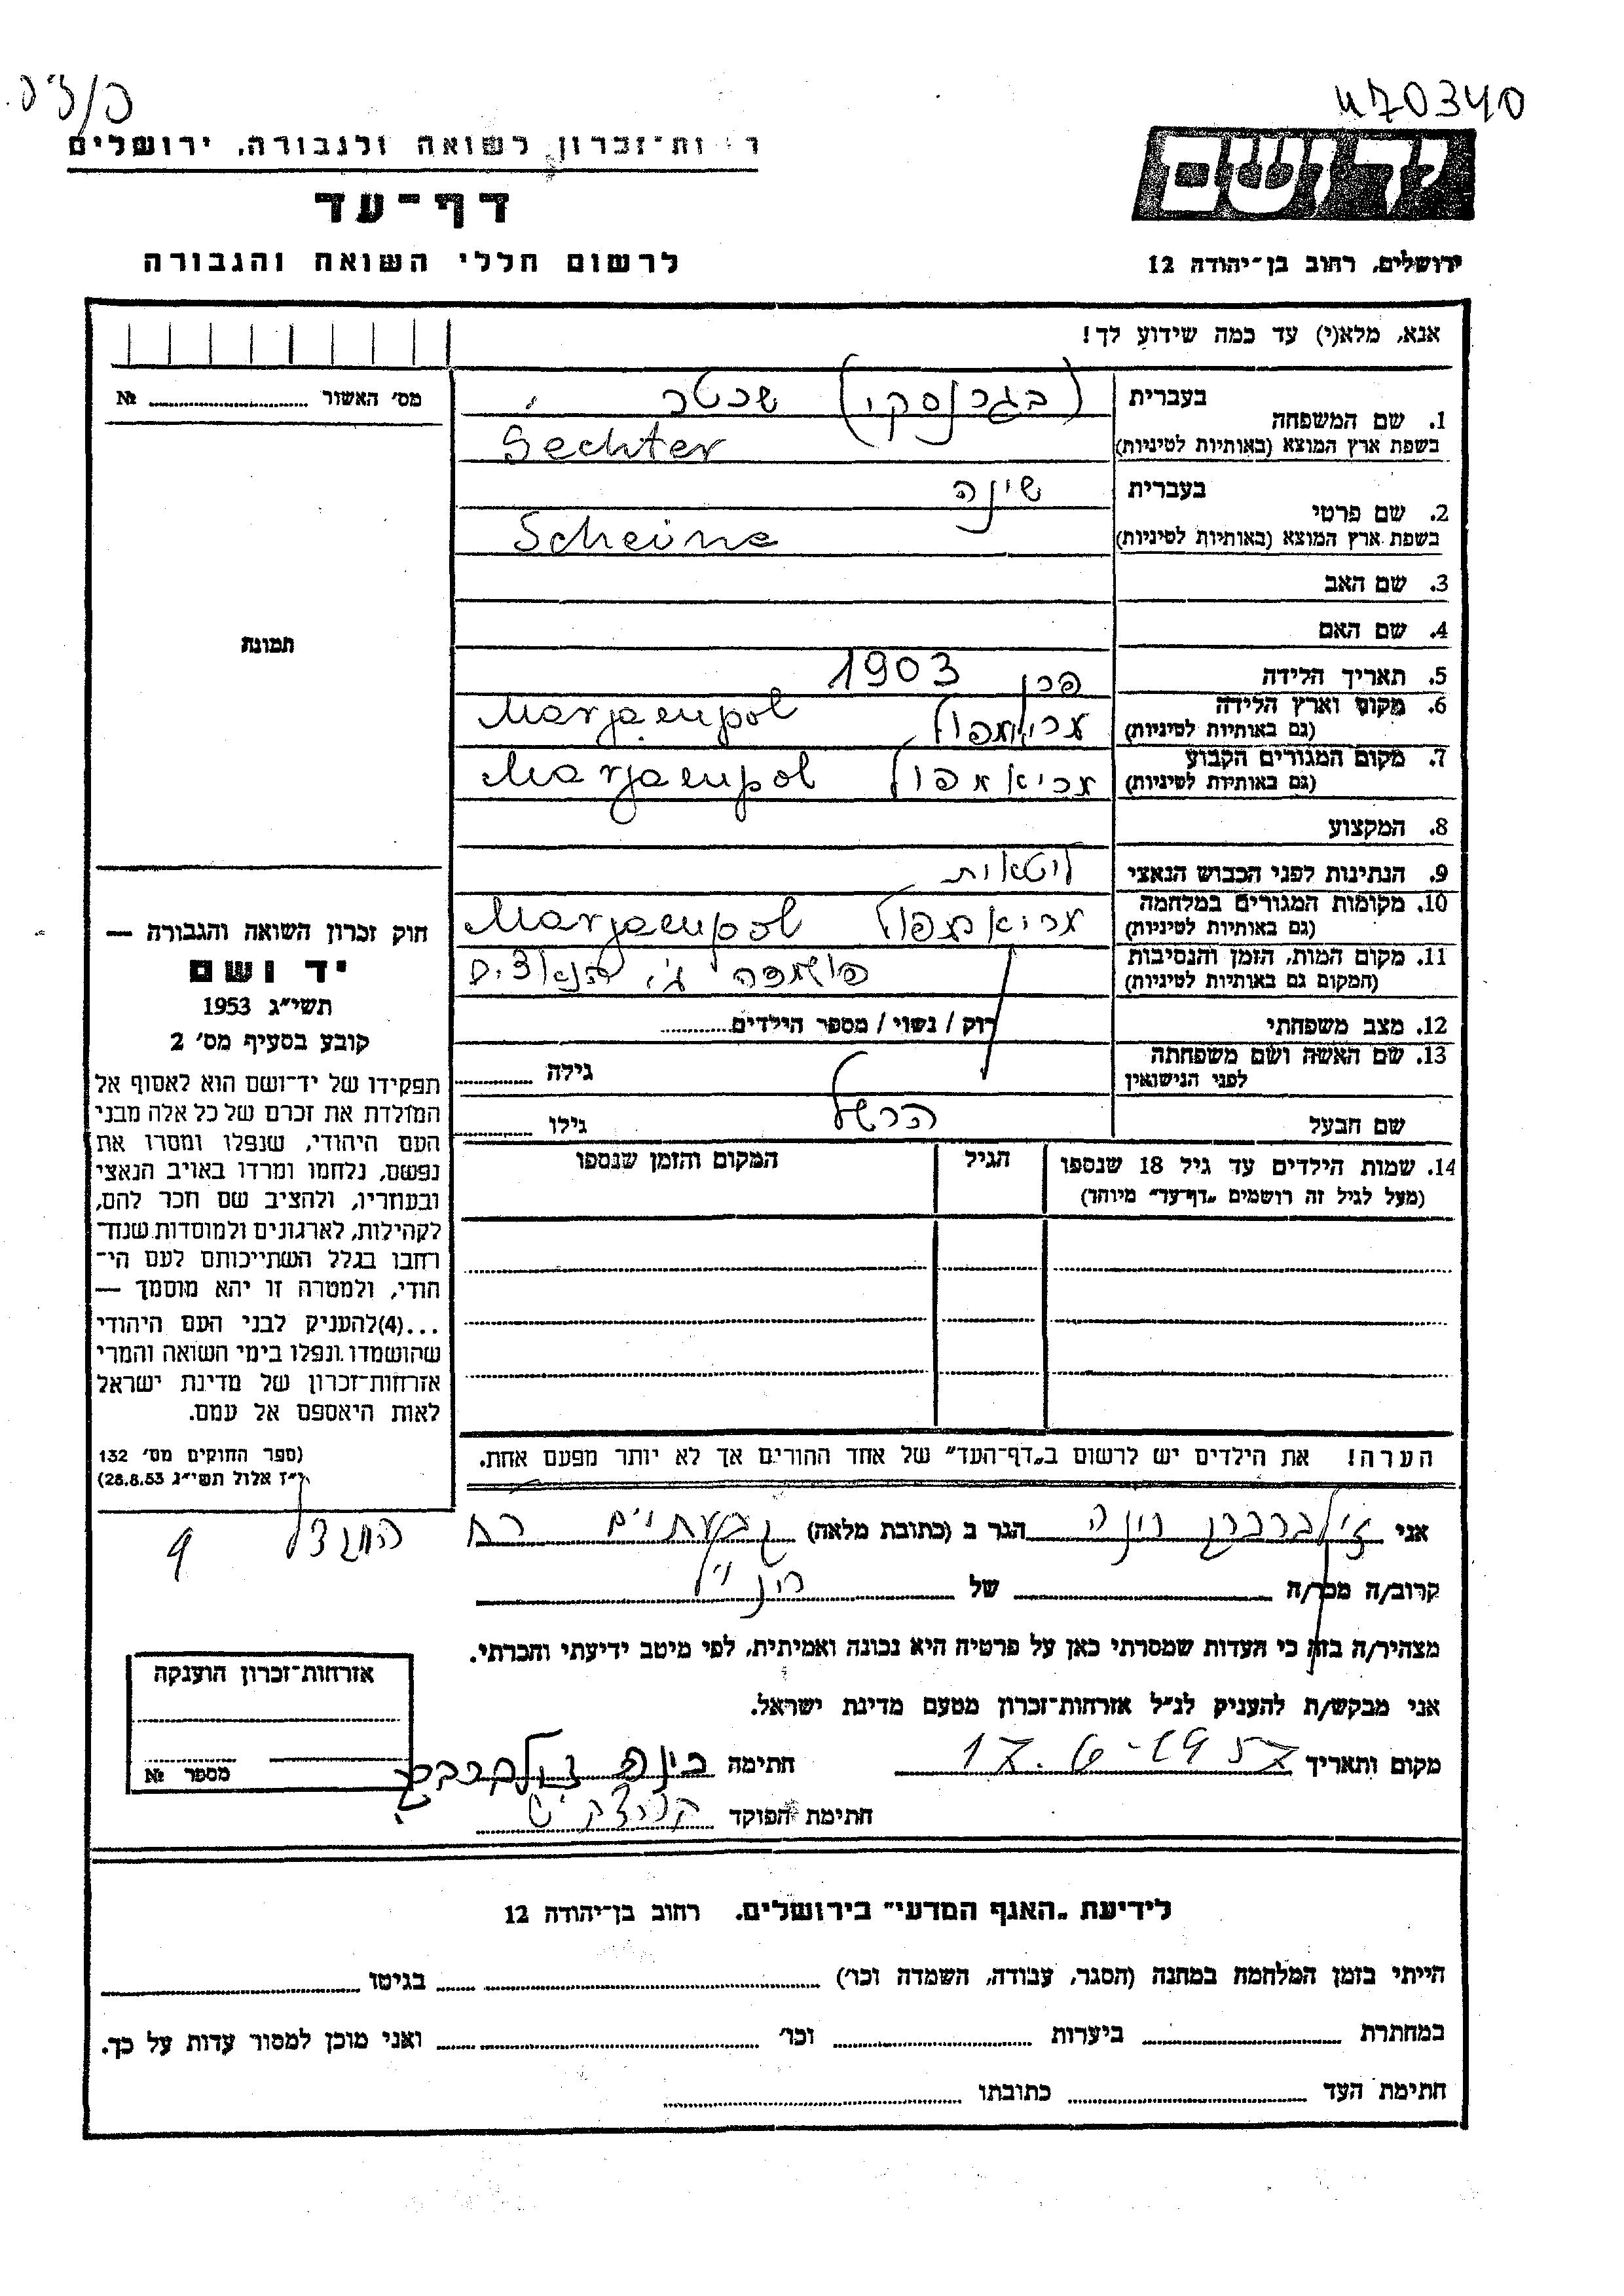 470340
יד ושם
ירושלים, רחוב בן־יהודה 12
ות־זכרון לשואה ולגבורה, ירושלים
דף־עד
לרשום חללי השואה והגבורה
אנא, מלא(י) עד כמה שידוע לך!
מס׳ האשור № 
1. שם המשפחה בעברית שכטר
בשפת ארץ המוצא (באותיות לטיניות) Sechter
2. שם פרטי בעברית שינה
בשפת ארץ המוצא (באותיות לטיניות) Scheine
3. שם האב
4. שם האם
תמונה
5. תאריך הלידה 1903
6. מקום וארץ הלידה Marjampol
(גם באותיות לטיניות)
7. מקום המגורים הקבוע מריאמפול Marjampol
(גם באותיות לטיניות)
8. המקצוע
9. הנתינות לפני הכבוש הנאצי ליטאית
10. מקומות המגורים במלחמה מריאמפול Marjampol
(גם באותיות לטיניות)
11. מקום המות, הזמן והנסיבות הנאצים
(המקום גם באותיות לטיניות)
12. מצב משפחתי רוק / נשוי / מספר הילדים
13. שם האשה ושם משפחתה
לפני הנישואין גילה
שם הבעל הרשל גילו
14. שמות הילדים עד גיל 18 שנספו הגיל המקום והזמן שנספו
(מעל לגיל זה רושמים „דף־עד״ מיוחד)
הערה! את הילדים יש לרשום ב„דף־העד״ של אחד ההורים אך לא יותר מפעם אחת.
חוק זכרון השואה והגבורה —
יד ושם
תשי״ג 1953
קובע בסעיף מס׳ 2
תפקידו של יד־ושם הוא לאסוף אל
המולדת את זכרם של כל אלה מבני
העם היהודי, שנפלו ומסרו את
נפשם, נלחמו ומרדו באויב הנאצי
ובעוזריו, ולהציב שם וזכר להם,
לקהילות, לארגונים ולמוסדות שנח־
רבו בגלל השתייכותם לעם הי־
הודי, ולמטרה זו יהא מוסמך —
...(4)להעניק לבני העם היהודי
שהושמדו ונפלו בימי השואה והמרי
אזרחות־זכרון של מדינת ישראל
לאות היאספם אל עמם.
(ספר החוקים מס׳ 132
י״ז אלול תשי״ג 28.8.53)
אני זילברברג רינה הגר ב (כתובת מלאה) גבעתיים רח 9
קרוב/ה מכר/ה של
מצהיר/ה בזה כי העדות שמסרתי כאן על פרטיה היא נכונה ואמיתית, לפי מיטב ידיעתי והכרתי.
אני מבקש/ת להעניק לנ״ל אזרחות־זכרון מטעם מדינת ישראל.
מקום ותאריך 17.6-1957 חתימה רינה זילברברג
חתימת הפוקד
אזרחות־זכרון הוענקה
מספר №
לידיעת „האגף המדעי״ בירושלים, רחוב בן־יהודה 12
הייתי בזמן המלחמה במחנה (הסגר, עבודה, השמדה וכו׳) בגיטו
במחתרת ביערות וכו׳ ואני מוכן למסור עדות על כך.
חתימת העד כתובתו